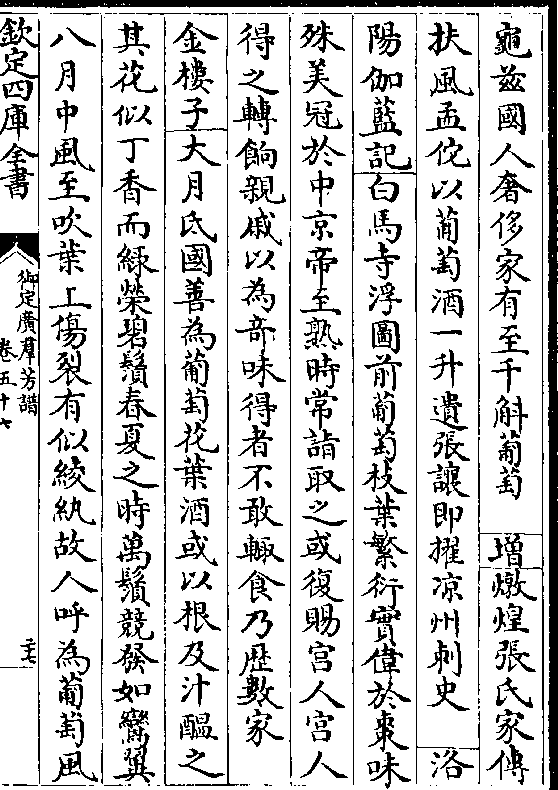 龜兹國人奢侈家有至千斛葡萄 增燉煌張氏家傳
扶風孟佗以葡萄酒一升遺張讓即擢凉州刺史 洛
陽伽藍記白馬寺浮圖前葡萄枝葉繁衍實偉於棗味
殊美冠於中京帝至熟時常詣取之或復賜宮人宮人
得之轉餉親戚以為竒味得者不敢輙食乃歴數家
金樓子大月氏國善為葡萄花葉酒或以根及汁醖之
其花似丁香而緑榮碧鬚春夏之時萬鬚競發如鸞翼
八月中風至吹葉上傷裂有似綾紈故人呼為葡萄風
欽定四庫全書
御定廣羣芳譜
卷五十七
二十七